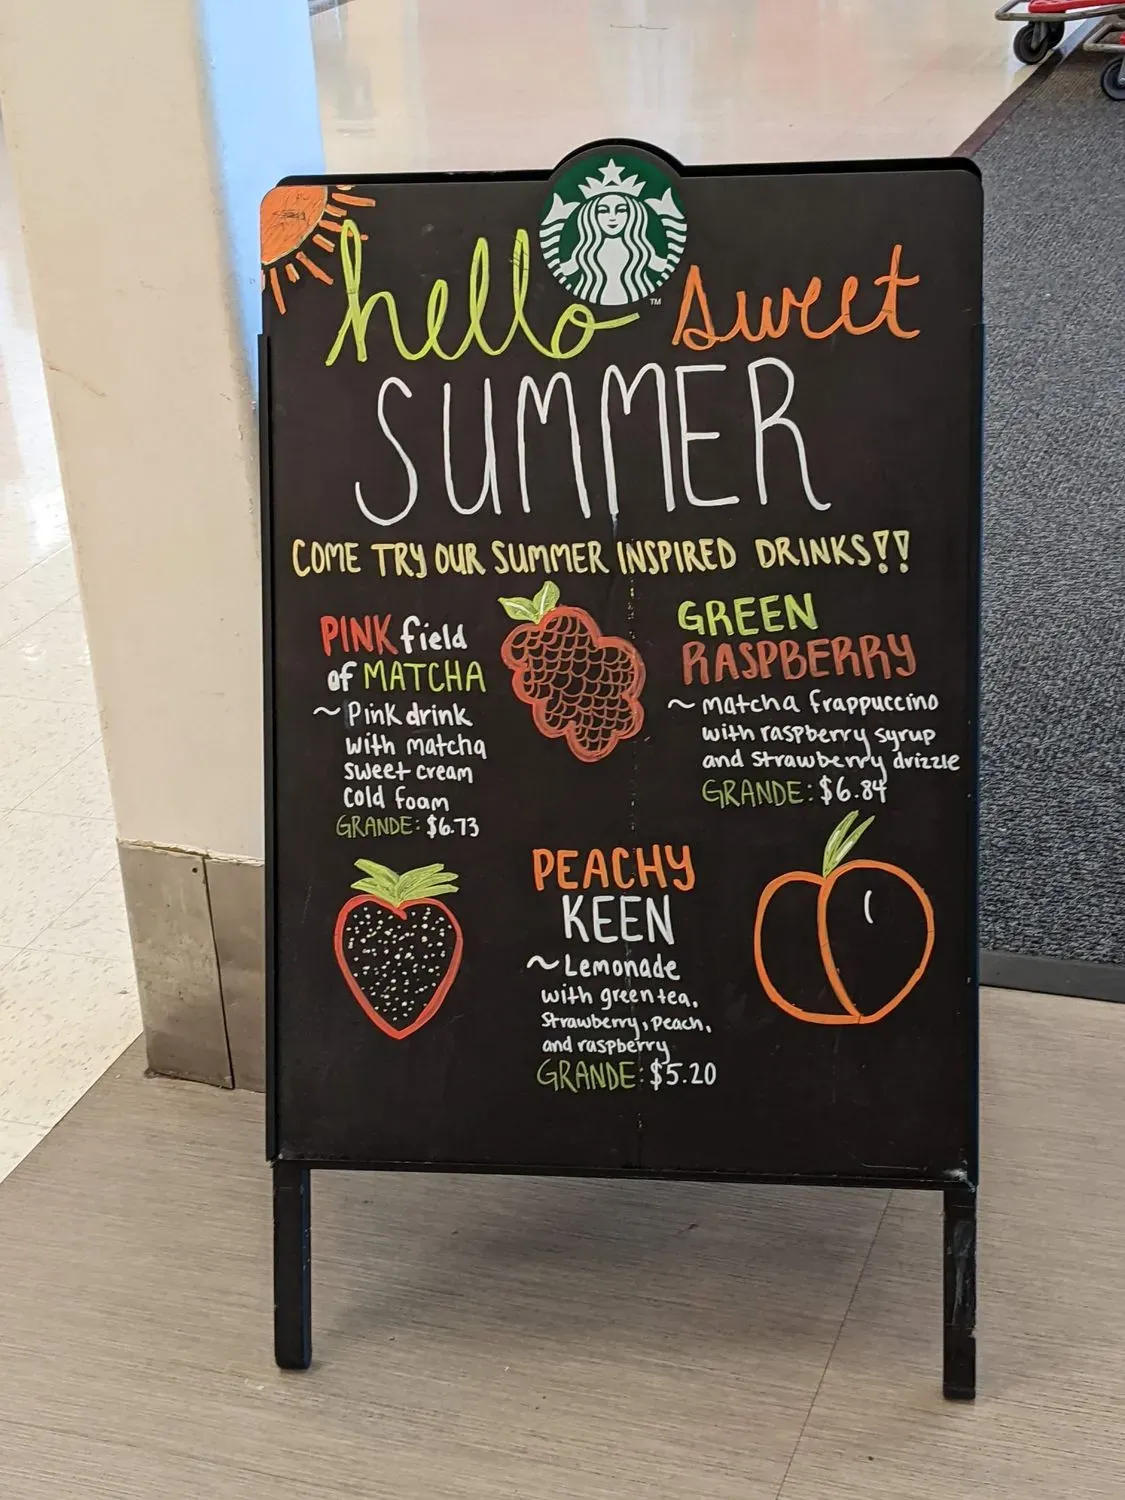 hello sweet
SUMMER
COME TRY OUR SUMMER INSPIRED DRINKS!!
PINK field
of MATCHA
~ Pink drink
with matcha
sweet cream
cold foam
GRANDE: $6.73
GREEN
RASPBERRY
~ matcha frappuccino
with raspberry syrup
and strawberry drizzle
GRANDE: $6.84
PEACHY
KEEN
~ Lemonade
with green tea,
strawberry, peach,
and raspberry
GRANDE: $5.20
TM